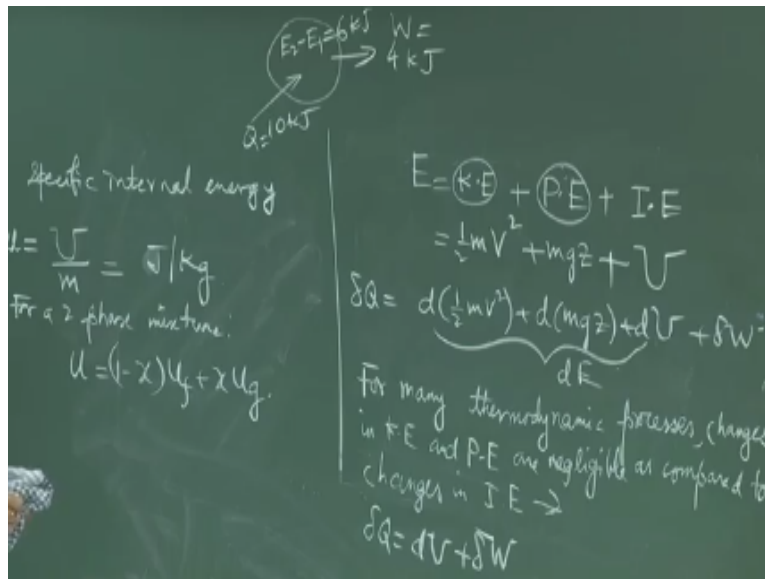 E₂-E₁=6kJ W=
4kJ
Q=10kJ
Specific internal energy
u= U/m = J/kg
For a 2 phase mixture:
u=(1-x)u_f+xu_g.
E= K.E + P.E + I.E
=½mV²+mgz+U
δQ= d(½mV²)+d(mgz)+dU+δW
dE
For many thermodynamic processes, changes
in K.E and P.E are negligible as compared to
changes in I E →
δQ=dU+δW